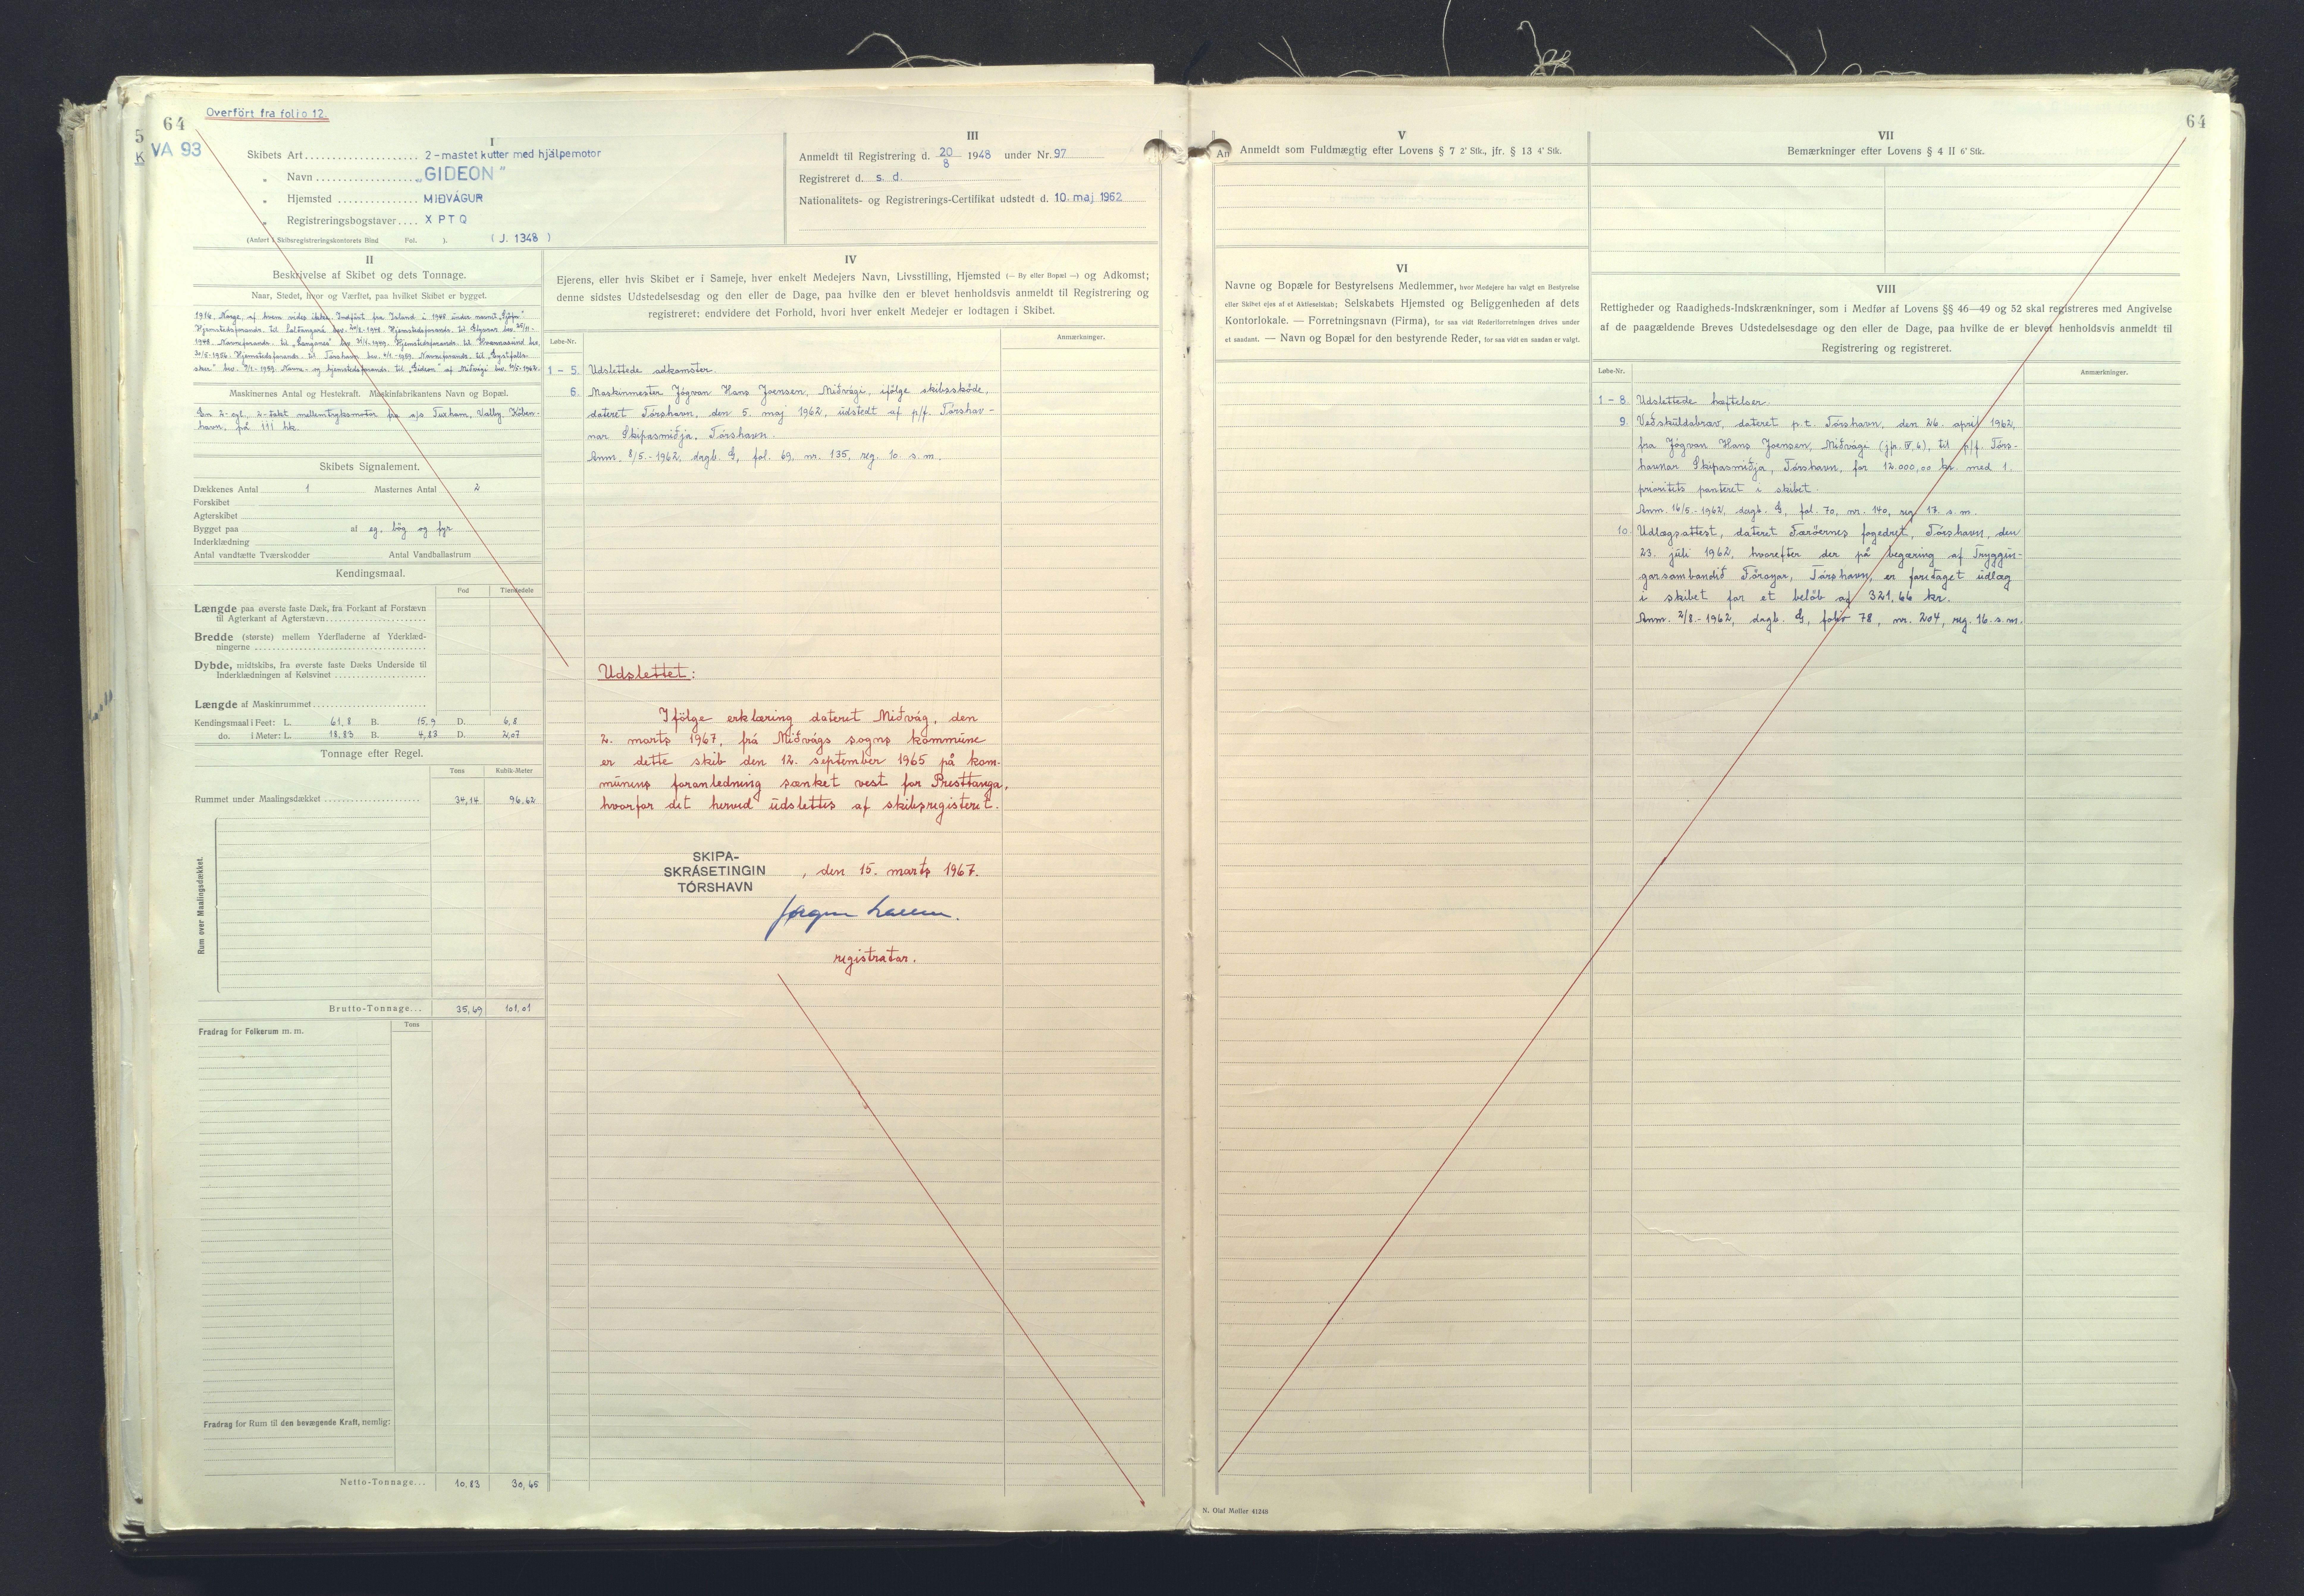 Overfört fra folio 12.
64
5
K
VA 93
I
Skibets Art 2-mastet kutter med hjälpemotor
" Navn „GIDEON"
" Hjemsted MIÐVÁGUR
" Registreringsbogstaver X P T Q
(Anført i Skibsregistreringskontorets Bind Fol. ). (J. 1348)
III
Anmeldt til Registrering d. 20/8 1948 under Nr. 97
Registreret d. s. d.
Nationalitets- og Registrerings-Certifikat udstedt d. 10. maj 1962
II
Beskrivelse af Skibet og dets Tonnage.
Naar, Stedet, hvor og Værftet, paa hvilket Skibet er bygget.
1914, Norge, af hvem vides ikke. Indført fra Island i 1948 under navnet
Hjemstedsforandr. til Saltangará bev. 20/8-1948. Hjemstedsforandr. til
1948. Navneforandr. til „Langanes" bev. Hjemstedsforandr. til Hvannasund bev.
30/5-1956. Hjemstedsforandr. til Tórshavn bev. Navneforandr. til
bev. Navne- og hjemstedsforandr. til „Gideon" af Miðvági bev. 10/5-1962.
Maskinernes Antal og Hestekraft. Maskinfabrikantens Navn og Bopæl.
Een 2-cyl., 2-takt mellemtryksmotor fra a/s Tuxham, Valby, Köben-
havn, på 111 hk.
Skibets Signalement.
Dækkenes Antal 1 Masternes Antal 2
Forskibet
Agterskibet
Bygget paa af eg, bög og fyr
Inderklædning
Antal vandtætte Tværskodder Antal Vandballastrum
Kendingsmaal.
Fod Tiendedele
Længde paa øverste faste Dæk, fra Forkant af Forstævn
til Agterkant af Agterstævn
Bredde (største) mellem Yderfladerne af Yderklæd-
ningerne
Dybde, midtskibs, fra øverste faste Dæks Underside til
Inderklædningen af Kølsvinet
Længde af Maskinrummet
Kendingsmaal i Feet: L. 61,8 B. 15,9 D. 6,8
do. i Meter: L. 18,83 B. 4,83 D. 2,07
Tonnage efter Regel.
Tons Kubik-Meter
Rummet under Maalingsdækket 34,14 96,62
Rum over Maalingsdækket.
Brutto-Tonnage... 35,69 101,01
Fradrag for Folkerum m. m.
Tons
Fradrag for Rum til den bevægende Kraft, nemlig:
Netto-Tonnage... 10,83 30,65
IV
Ejerens, eller hvis Skibet er i Sameje, hver enkelt Medejers Navn, Livsstilling, Hjemsted (— By eller Bopæl —) og Adkomst;
denne sidstes Udstedelsesdag og den eller de Dage, paa hvilke den er blevet henholdsvis anmeldt til Registrering og
registreret; endvidere det Forhold, hvori hver enkelt Medejer er lodtagen i Skibet.
Løbe-Nr.
Anmærkninger.
1 - 5. Udslettede adkomster.
6. Maskinmester Jógvan Hans Joensen, Miðvági, ifölge skibsskøde,
dateret Tórshavn, den 5. maj 1962, udstedt af p/f. Tórshav-
nar Skipasmiðja, Tórshavn.
Anm. 8/5.-1962, dagb. G, fol. 69, nr. 135, reg. 10. s. m.
Udslettet:
Ifölge erklæring dateret Miðvág, den
2. marts 1967, frá Miðvágs sogns kommune
er dette skib den 12. september 1965 på kom-
munens foranledning sænket vest for Presttanga,
hvorfor det herved udslettes af skibsregisteret.
SKIPA-
SKRÁSETINGIN
TÓRSHAVN
, den 15. marts 1967.
registrator.
An
V
Anmeldt som Fuldmægtig efter Lovens § 7 2' Stk., jfr. § 13 4' Stk.
VI
Navne og Bopæle for Bestyrelsens Medlemmer, hvor Medejere har valgt en Bestyrelse
eller Skibet ejes af et Aktieselskab; Selskabets Hjemsted og Beliggenheden af dets
Kontorlokale. — Forretningsnavn (Firma), for saa vidt Rederiforretningen drives under
et saadant. — Navn og Bopæl for den bestyrende Reder, for saa vidt en saadan er valgt.
64
VII
Bemærkninger efter Lovens § 4 II 6' Stk.
VIII
Rettigheder og Raadigheds-Indskrænkninger, som i Medfør af Lovens §§ 46—49 og 52 skal registreres med Angivelse
af de paagældende Breves Udstedelsesdage og den eller de Dage, paa hvilke de er blevet henholdsvis anmeldt til
Registrering og registreret.
Løbe-Nr.
Anmærkninger.
1 - 8. Udslettede hæftelser.
9. Veðskuldabræv, dateret p.t. Tórshavn, den 26. april 1962,
fra Jógvan Hans Joensen, Miðvági (jfr. IV, 6), til p/f. Tórs-
havnar Skipasmiðja, Tórshavn, for 12.000,00 kr. med 1.
prioritets panteret i skibet.
Anm. 16/5.-1962, dagb. G, fol. 70, nr. 140, reg. 17. s. m.
10. Udlægsattest, dateret Færöernes fogedret, Tórshavn, den
23. juli 1962, hvorefter der på begæring af Tryggin-
garsambandið Föroyar, Tórshavn, er foretaget udlæg
i skibet for et belöb af 321,66 kr.
Anm. 2/8.-1962, dagb. G, folio 78, nr. 204, reg. 16. s. m.
N. Olaf Møller 41248